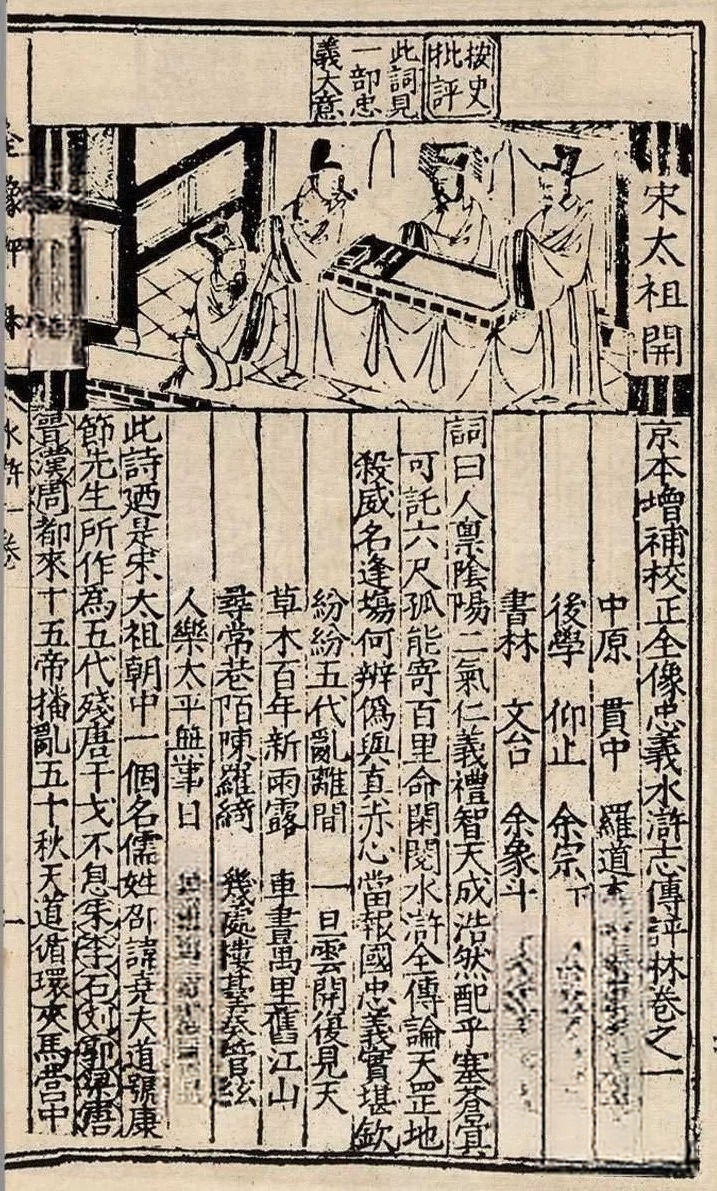 按史
批評
此詞見
一部忠
義大意
宋太祖開
京本增補校正全像忠義水滸志傳評林卷之一
中原 貫中 羅道
後學 仰止 余宗下
書林 文台 余象斗
詞曰人禀陰陽二氣仁義禮智天成浩然配乎塞蒼冥
可託六尺孤能寄百里命閑閱水滸全傳論天罡地
殺威名逢塲何辨偽與真赤心當報國忠義實堪欽
紛紛五代亂離間 一旦雲開復見天
草木百年新雨露 車書萬里舊江山
尋常巷陌陳羅綺 幾處樓臺奏管絃
人樂太平無事日
此詩廼是宋太祖朝中一個名儒姓邵諱堯夫道號康
節先生所作為五代殘唐干戈不息朱李石刘郭梁唐
晋漢周都來十五帝播亂五十秋天道循環夾馬營中
水滸一卷
一